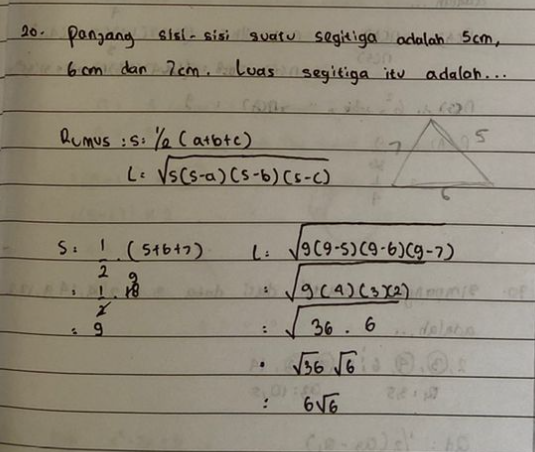 20. Panjang sisi-sisi suatu segitiga adalah 5cm,
6cm dan 7cm. Luas segitiga itu adalah...
Rumus : s: 1/2 (a+b+c)
L: √s(s-a)(s-b)(s-c)
7
5
6
S: 1/2 . (5+6+7)
: 1/2 . 18 9
: 9
L: √9(9-5)(9-6)(9-7)
: √9(4)(3)(2)
: √36 . 6
: √36 √6
: 6√6